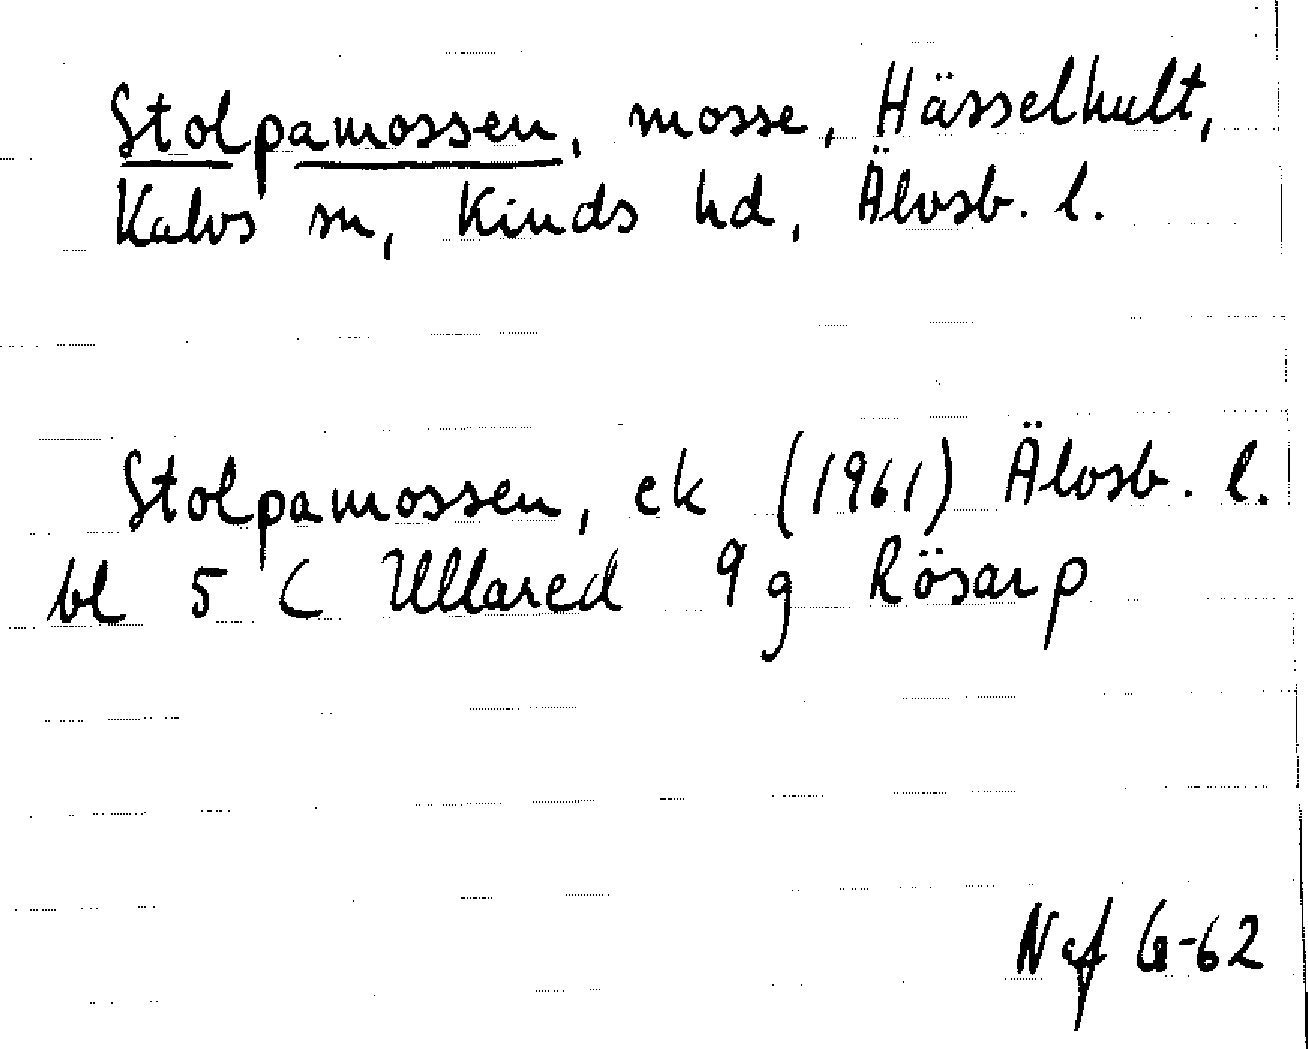 Stolpamossen, mosse, Hässelhult,
Kalvs sn, Kinds hd, Älvsb. l.
Stolpamossen, ek (1961) Älvsb. l.
bl 5 C Ullared 9 g Rösarp
Nef G-62